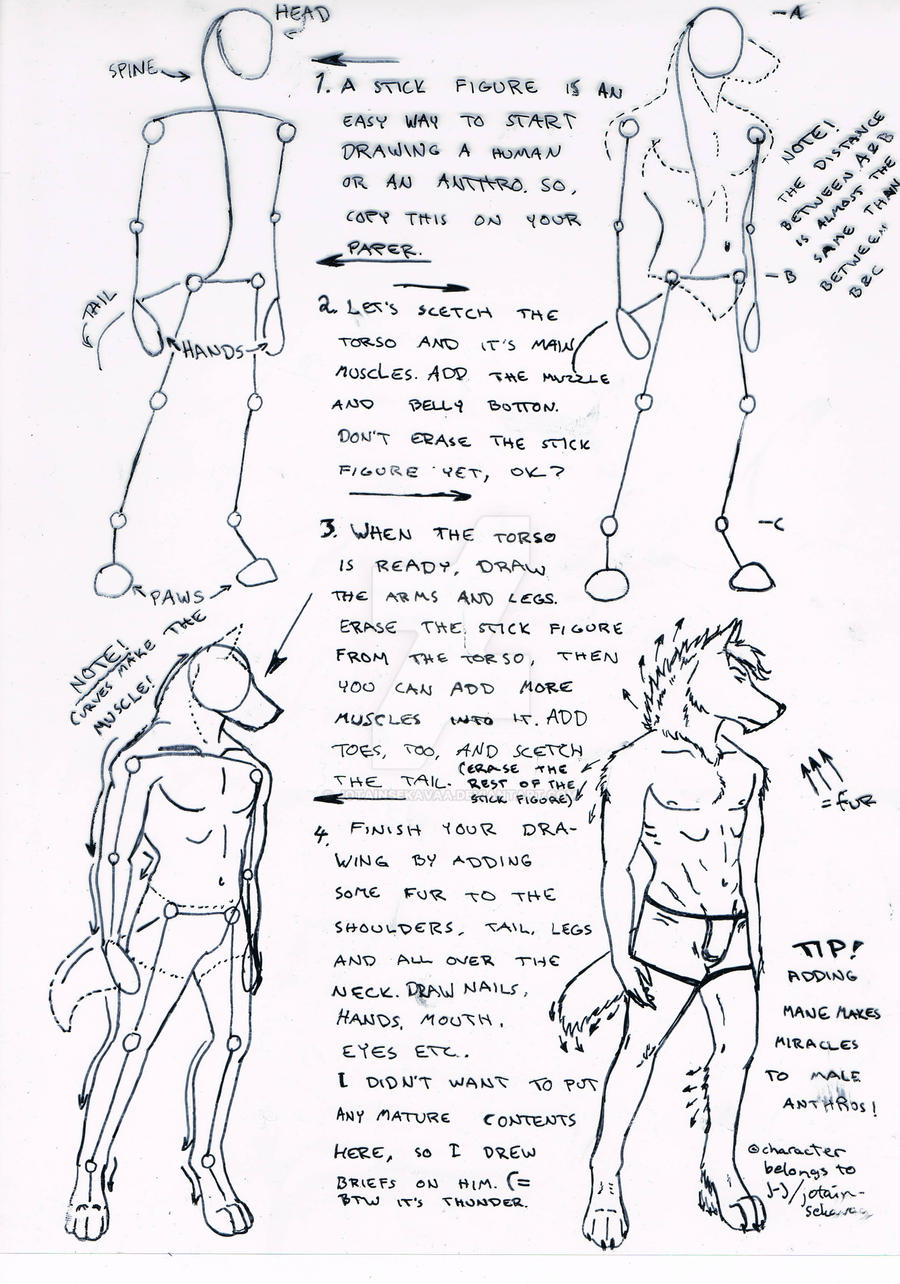 HEAD
SPINE
1. A STICK FIGURE IS AN
EASY WAY TO START
DRAWING A HUMAN
OR AN ANTHRO. SO,
COPY THIS ON YOUR
PAPER.
TAIL
HANDS
PAWS
-A
-B
-C
NOTE!
THE DISTANCE
BETWEEN A&B
IS ALMOST THE
SAME THAN
BETWEEN
B&C
2. LET'S SCETCH THE
TORSO AND IT'S MAIN
MUSCLES. ADD THE MUZZLE
AND BELLY BOTTON.
DON'T ERASE THE STICK
FIGURE YET, OK?
3. WHEN THE TORSO
IS READY, DRAW
THE ARMS AND LEGS.
ERASE THE STICK FIGURE
FROM THE TORSO, THEN
YOU CAN ADD MORE
MUSCLES INTO IT. ADD
TOES, TOO, AND SCETCH
THE TAIL. (ERASE THE
REST OF THE
STICK FIGURE)
NOTE!
CURVES MAKE THE
MUSCLE!
4. FINISH YOUR DRA-
WING BY ADDING
SOME FUR TO THE
SHOULDERS, TAIL, LEGS
AND ALL OVER THE
NECK. DRAW NAILS,
HANDS, MOUTH,
EYES ETC..
I DIDN'T WANT TO PUT
ANY MATURE CONTENTS
HERE, SO I DREW
BRIEFS ON HIM. (=
BTW IT'S THUNDER.
= FUR
TIP!
ADDING
MANE MAKES
MIRACLES
TO MALE
ANTHROS!
©character
belongs to
J-J/jotain-
sekavaa
JOTAINSEKAVAA.DEVIANTART.COM